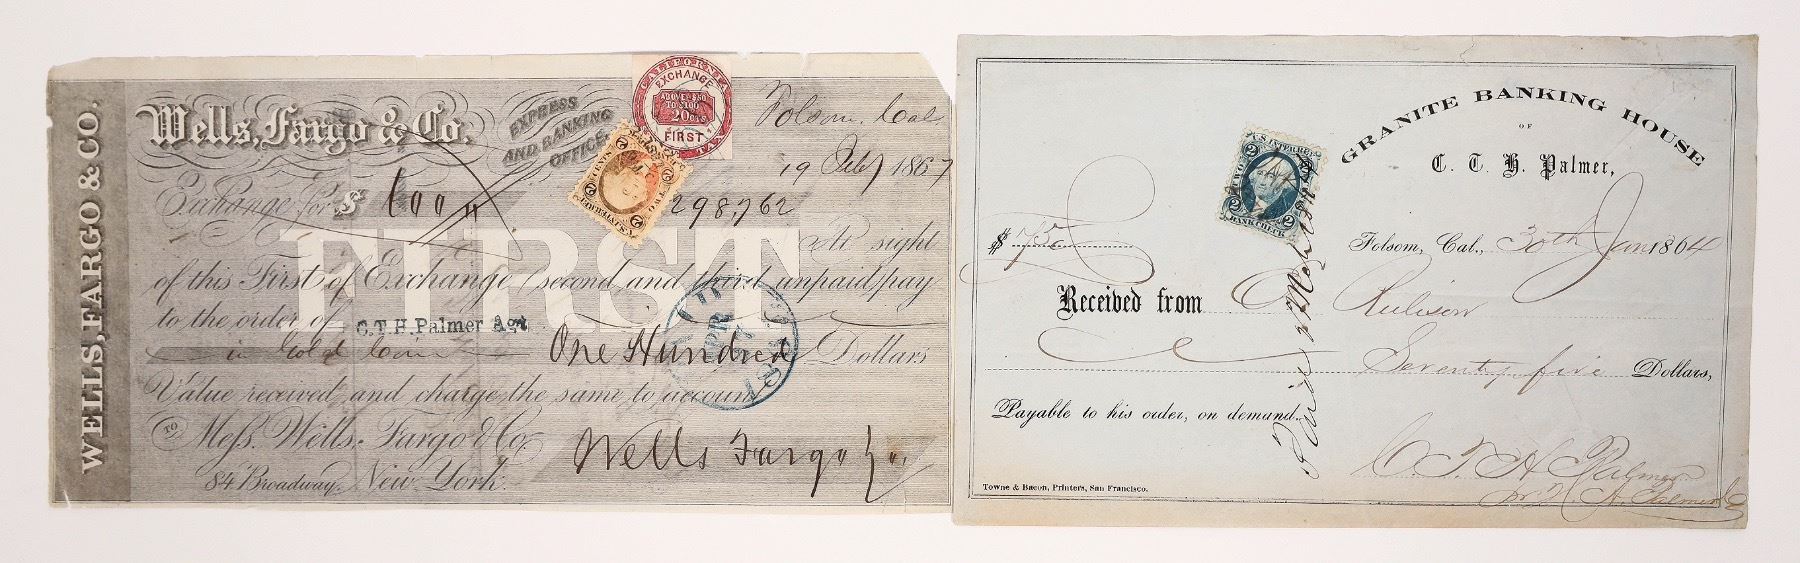 WELLS, FARGO & CO.
Wells, Fargo & Co.
EXPRESS
AND BANKING
OFFICE.
CALIFORNIA
EXCHANGE
ABOVE $50
TO $100
20cts
FIRST
TAX
U.S. INTER. REV.
TWO CENTS
2 2
2 2
Folsom, Cal
19 Feby 1867
Exchange for $ 100
298,762
FIRST
At sight
of this First of Exchange (second and third unpaid) pay
to the order of C.T.H. Palmer Agt
in Gold Coin One Hundred Dollars
Value received, and charge the same to account
TO Mess. Wells, Fargo & Co.
84 Broadway. New York.
Wells Fargo & Co.
GRANITE BANKING HOUSE
OF
C. T. H. Palmer,
U.S. INTER. REV.
TWO CENTS
2 2
2 2
BANK CHECK
$ 75
Folsom, Cal., 30th Jan 1864
Received from
Seventy five Dollars,
Payable to his order, on demand.
C T H Palmer
Towne & Bacon, Printers, San Francisco.